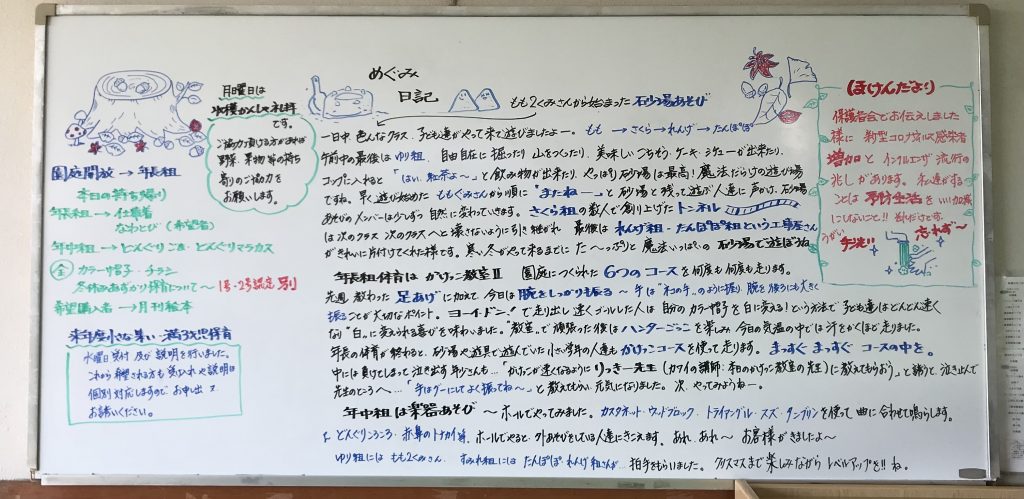 月曜日は
収穫かんしゃ礼拝
です。
ご協力頂ける方があれば
野菜、果物等の持ち
寄りのご協力を
お願いします。
園庭開放 → 年長組
本日の持ち帰り
年長組 →
なわとび(希望者)
年中組 → どんぐりごま・どんぐりマラカス
全 カラー帽子・チラシ
冬休みあずかり保育について〜 1号・2号認定 別
希望購入者 → 月刊絵本
来年度小さな集い・満3才児保育
水曜日受付及び説明を行いました。
これから希望される方も 説明日
個別対応しますので お申出て
お話ください。
めぐみ
日記
もも2くみさんから始まった 砂場あそび
一日中 色んなクラス、子ども達がやって来て遊びましたよー。もも → さくら → れんげ → たんぽぽ
午前中の最後は ゆり組、自由自在に 掘ったり 山をつくったり、美味しいごちそう・ケーキ・シチューが出来たり、
コップに入れると 「はい、紅茶よ〜」と飲み物が出来たり、やっぱり砂場は最高!魔法だらけの遊び場
ですね。早く遊び始めた ももぐみさんから順に "またねー"と 砂場と残って遊ぶ人達に声かけ、砂場
あそびのメンバーは少しずつ 自然に変わっていきます。さくら組の数人で創り上げた トンネル
は次のクラス 次のクラスへと壊さないように引き継がれ 最後は れんげ組・たんぽぽ組という工事屋さん
がきれいに片付けてくれた様です。寒い冬がやって来るまでに た〜っぷりと 魔法いっぱいの 砂場で遊ぼうね
年長組体育は かけっこ教室Ⅱ 園庭につくられた 6つのコースを何度も何度も走ります。
先週 教わった 足あげに加えて 今日は 腕をしっかり振る 〜 手は
振ることが大切なポイント。ヨーイ・ドン!で走り出し 速くゴールした人は 自分のカラー帽子を白に変える!という方法で 子ども達はどんどん速く
なり"白"に変えられる喜びを味わいました。"教室"で頑張った後は ハンターごっこを楽しみ 今日の気温の中では汗をかくほど走りました。
年長の体育が終わると、砂場や遊具で遊んでいた小さい学年の人達も かけっこコースを使って走ります。まっすぐ まっすぐ コースの中を。
中には負けてしまって 泣き出す 年少さんも…「かけっこが速くなるように りっきー先生(カワイの講師:本日のかけっこ教室の先生)に教えてもらおう」と誘うと、泣き止んで
先生のところへ…「手はグーにしてよく振ってね〜」と教えてもらい 元気になりました。次、やってみようねー。
年中組は楽器あそび 〜 ホールでやってみました。カスタネット・ウッドブロック・トライアングル・スズ・タンブリンを使って 曲に合わせて鳴らします。
♪ どんぐりころころ・赤鼻のトナカイ等、ホールでやると、外あそびをしている人達にきこえます。あれ、あれ〜 お客様がきましたよ〜
ゆり組には もも2くみさん、すみれ組には たんぽぽ れんげ組さんが… 拍手をもらいました。クリスマスまで楽しみながら レベルアップを!! ね。
ほけんだより
保護者会でお伝えしました
様に 新型コロナウイルス感染者
増加と インフルエンザ流行の
兆しがあります。私達ができる
ことは 予防生活を いい加減
にしないこと!! それだけです。
うがい 手洗い 忘れず〜